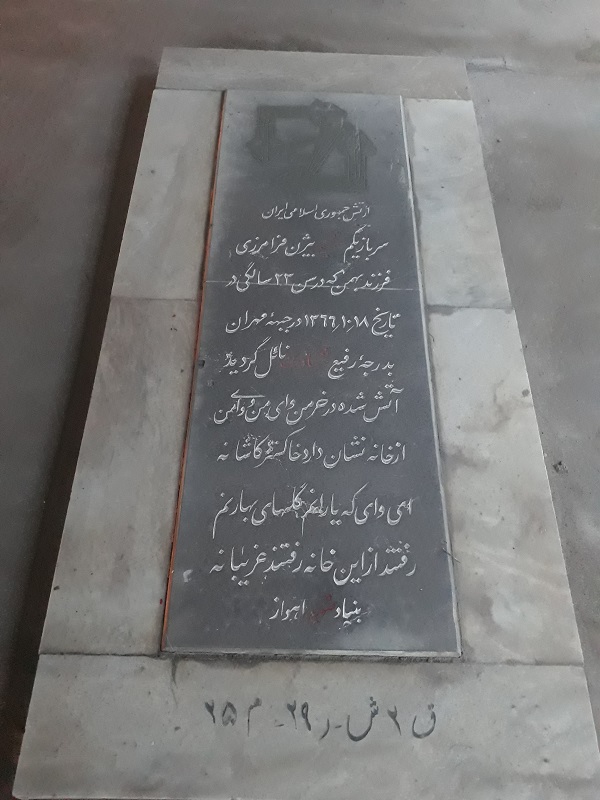 ارتش جمهوری اسلامی ایران
سرباز یکم شهید بیژن فرامرزی
فرزند بهمن که در سن ۲۲ سالگی در
تاریخ ۱۳۶۶،۱۰،۱۸ در جبهه مهران
بدرجه رفیع شهادت نائل گردید
آتش شده در خرمن وای من و وای من
از خانه نشان دارد خاکستر کاشانه
ای وای که یارانم گلهای بهارنم
رفتند از این خانه رفتند غریبانه
بنیاد شهید اهواز
ق ۶ ش - ر ۲۹ - م ۶۵